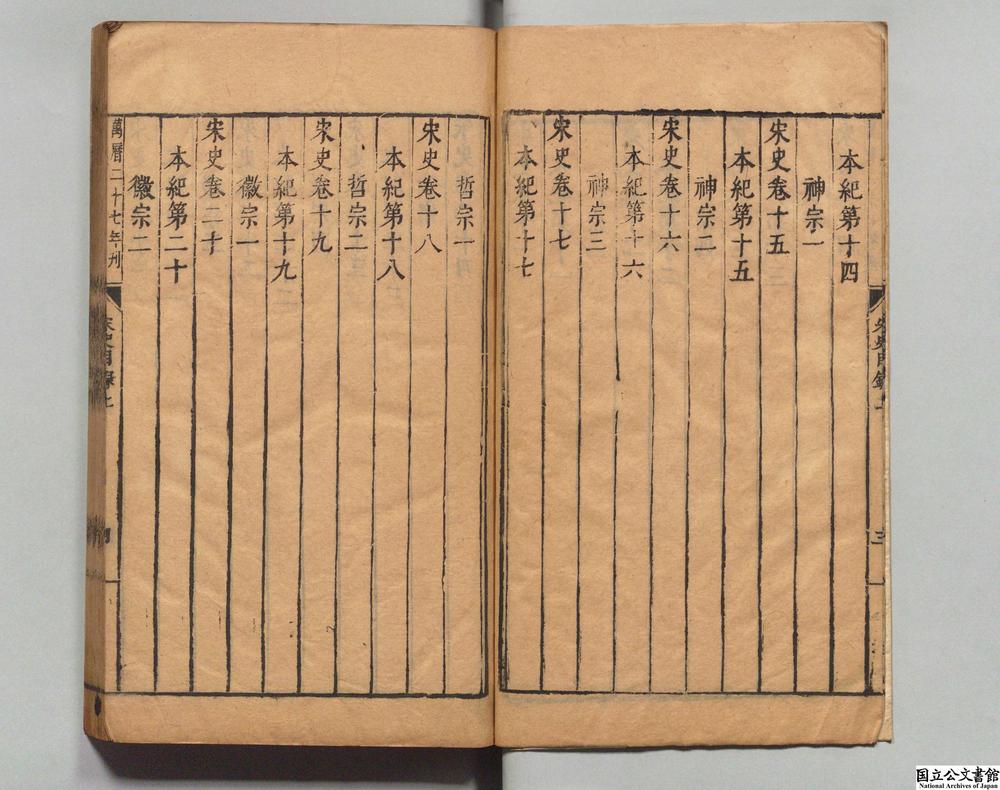 本紀第十四
神宗一
宋史卷十五
本紀第十五
神宗二
宋史卷十六
本紀第十六
神宗三
宋史卷十七
本紀第十七
哲宗一
宋史卷十八
本紀第十八
哲宗二
宋史卷十九
本紀第十九
徽宗一
宋史卷二十
本紀第二十
徽宗二
萬曆二十七年刊
宋史目錄上
三
宋史目錄上
国立公文書館
National Archives of Japan